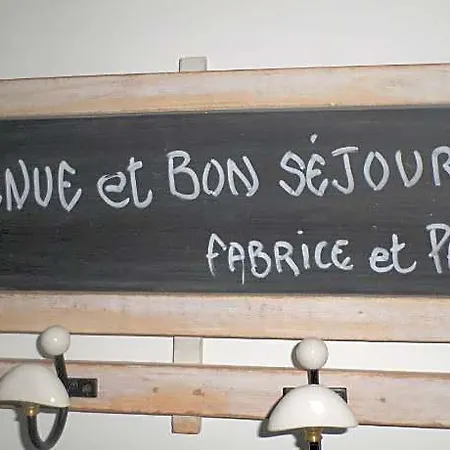 ENUE et BON SÉJOUR
FABRICE et PA